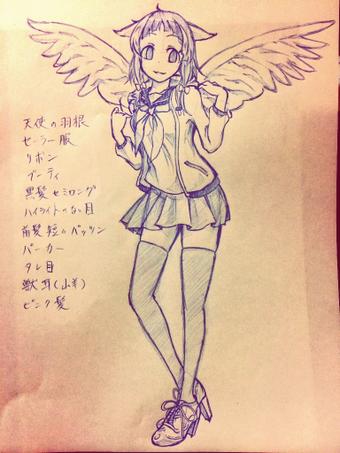 天使の羽根
セーラー服
リボン
ブーティ
黒髪セミロング
ハイライトのない目
前髪短めパッツン
パーカー
タレ目
獣耳(山羊)
ピンク髪